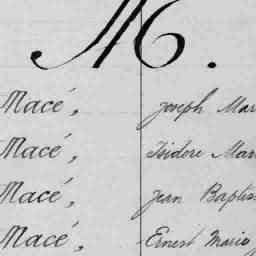 M.
Macé, Joseph Mar
Macé, Isidore Mar
Macé, Jean Baptis
Macé, Ernest Mario